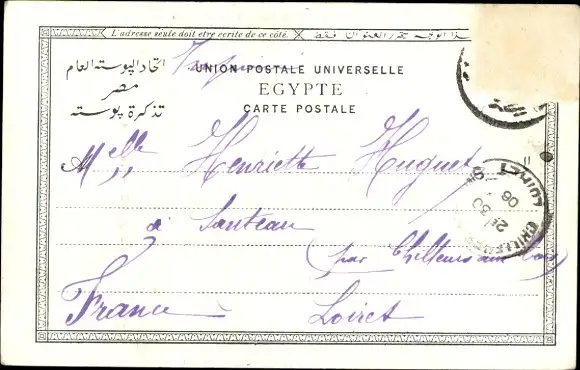 L'adresse seule doit être écrite de ce côté. هذا الوجه محرر العنوان فقط
اتحاد البوستة العام
مصر
تذكرة بوستة
UNION POSTALE UNIVERSELLE
EGYPTE
CARTE POSTALE
Melle Henriette Huguet
à Santeau
(par Chilleurs aux bois)
France Loiret
LOIRET
CHILLEURS